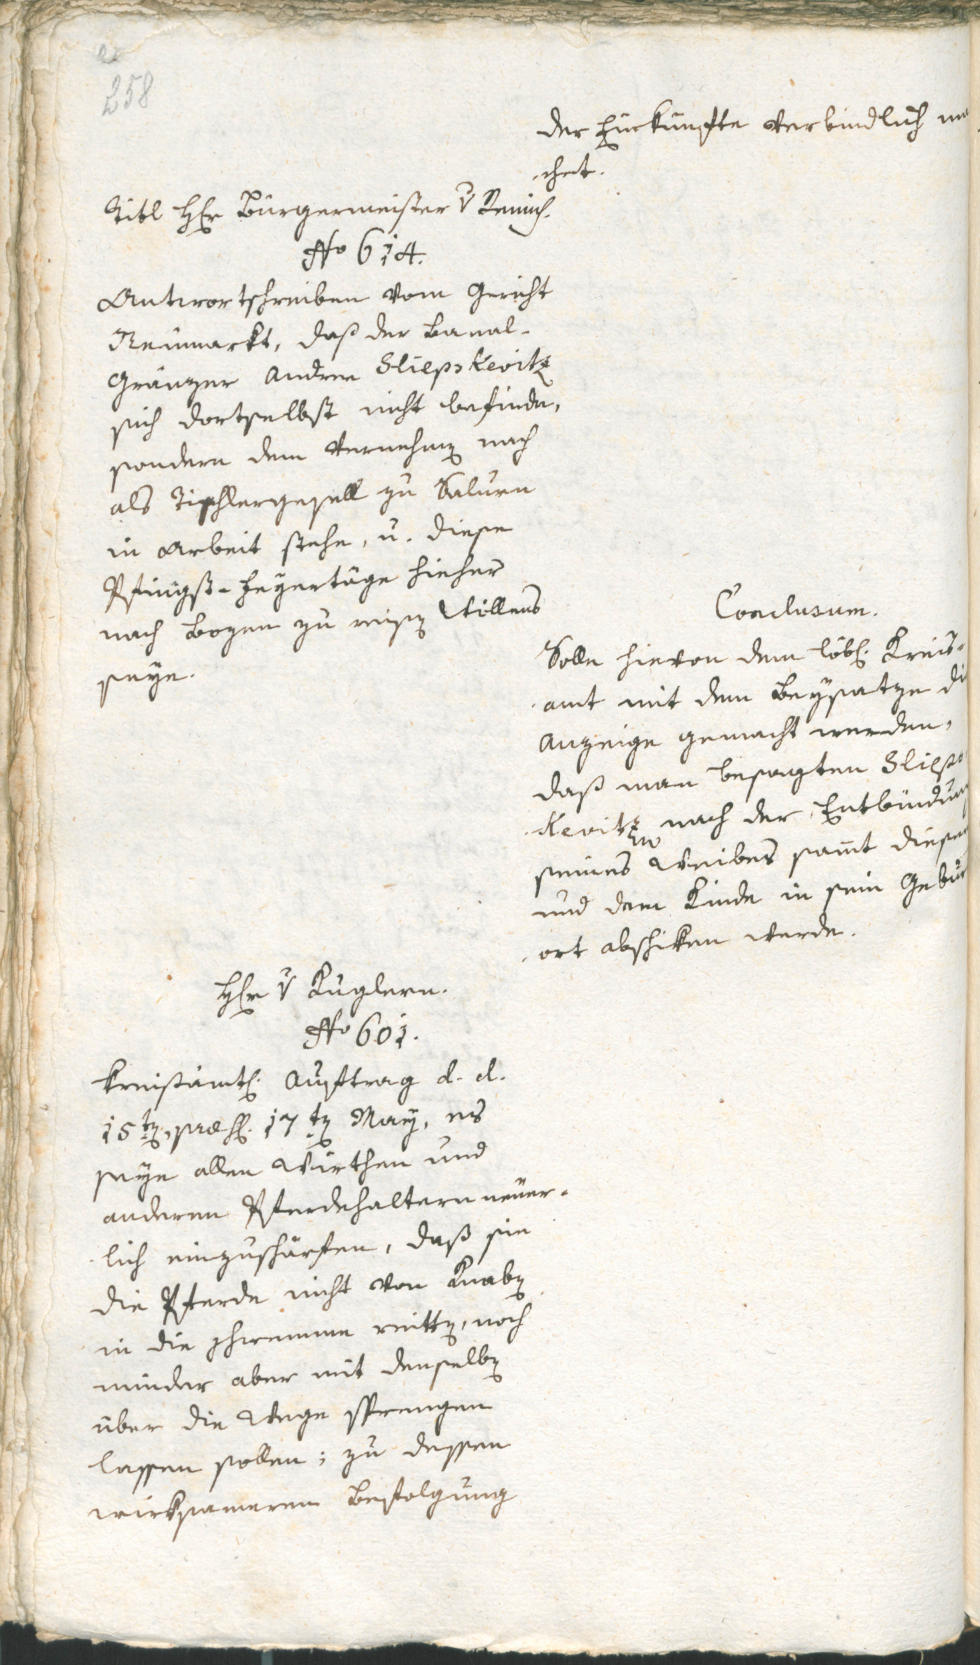 258
der Zukünfte verbindlich ma
chet.
Titl Hr Bürgermeister v Remich.
No 614.
Antwortschreiben vom Gericht
Neumarkt, daß der Banal-
Gränzer Andree Sliepskevitz
sich dortselbst nicht befinde,
sondern dem Vernehmen nach
als Tischlergesell zu Salurn
in Arbeit stehe, u. diese
Pfingst-Feyertäge hieher
nach Bozen zu reisen Willens
seye.
Conclusum.
Solle hievon dem löbl. Kreis-
amt mit dem Beysatze di
Anzeige gemacht werden,
daß man besagten Slieps
Kevitz nach der Entbindung
seines Weibes samt diesen
und dem Kinde in sein Gebur
ort abschiken werde.
Hr v Kuglern.
No 601.
Kreisämtl. Auftrag d. d.
15ten, præs. 17ten May, es
seye allen Wirthen und
anderen Pferdehaltern neuer-
lich einzuschärfen, daß sie
die Pferde nicht von Knaben
in die Schwemme reitten, noch
minder aber mit denselben
über die Wege sprengen
lassen sollen; zu dessen
wirksameren Befolgung